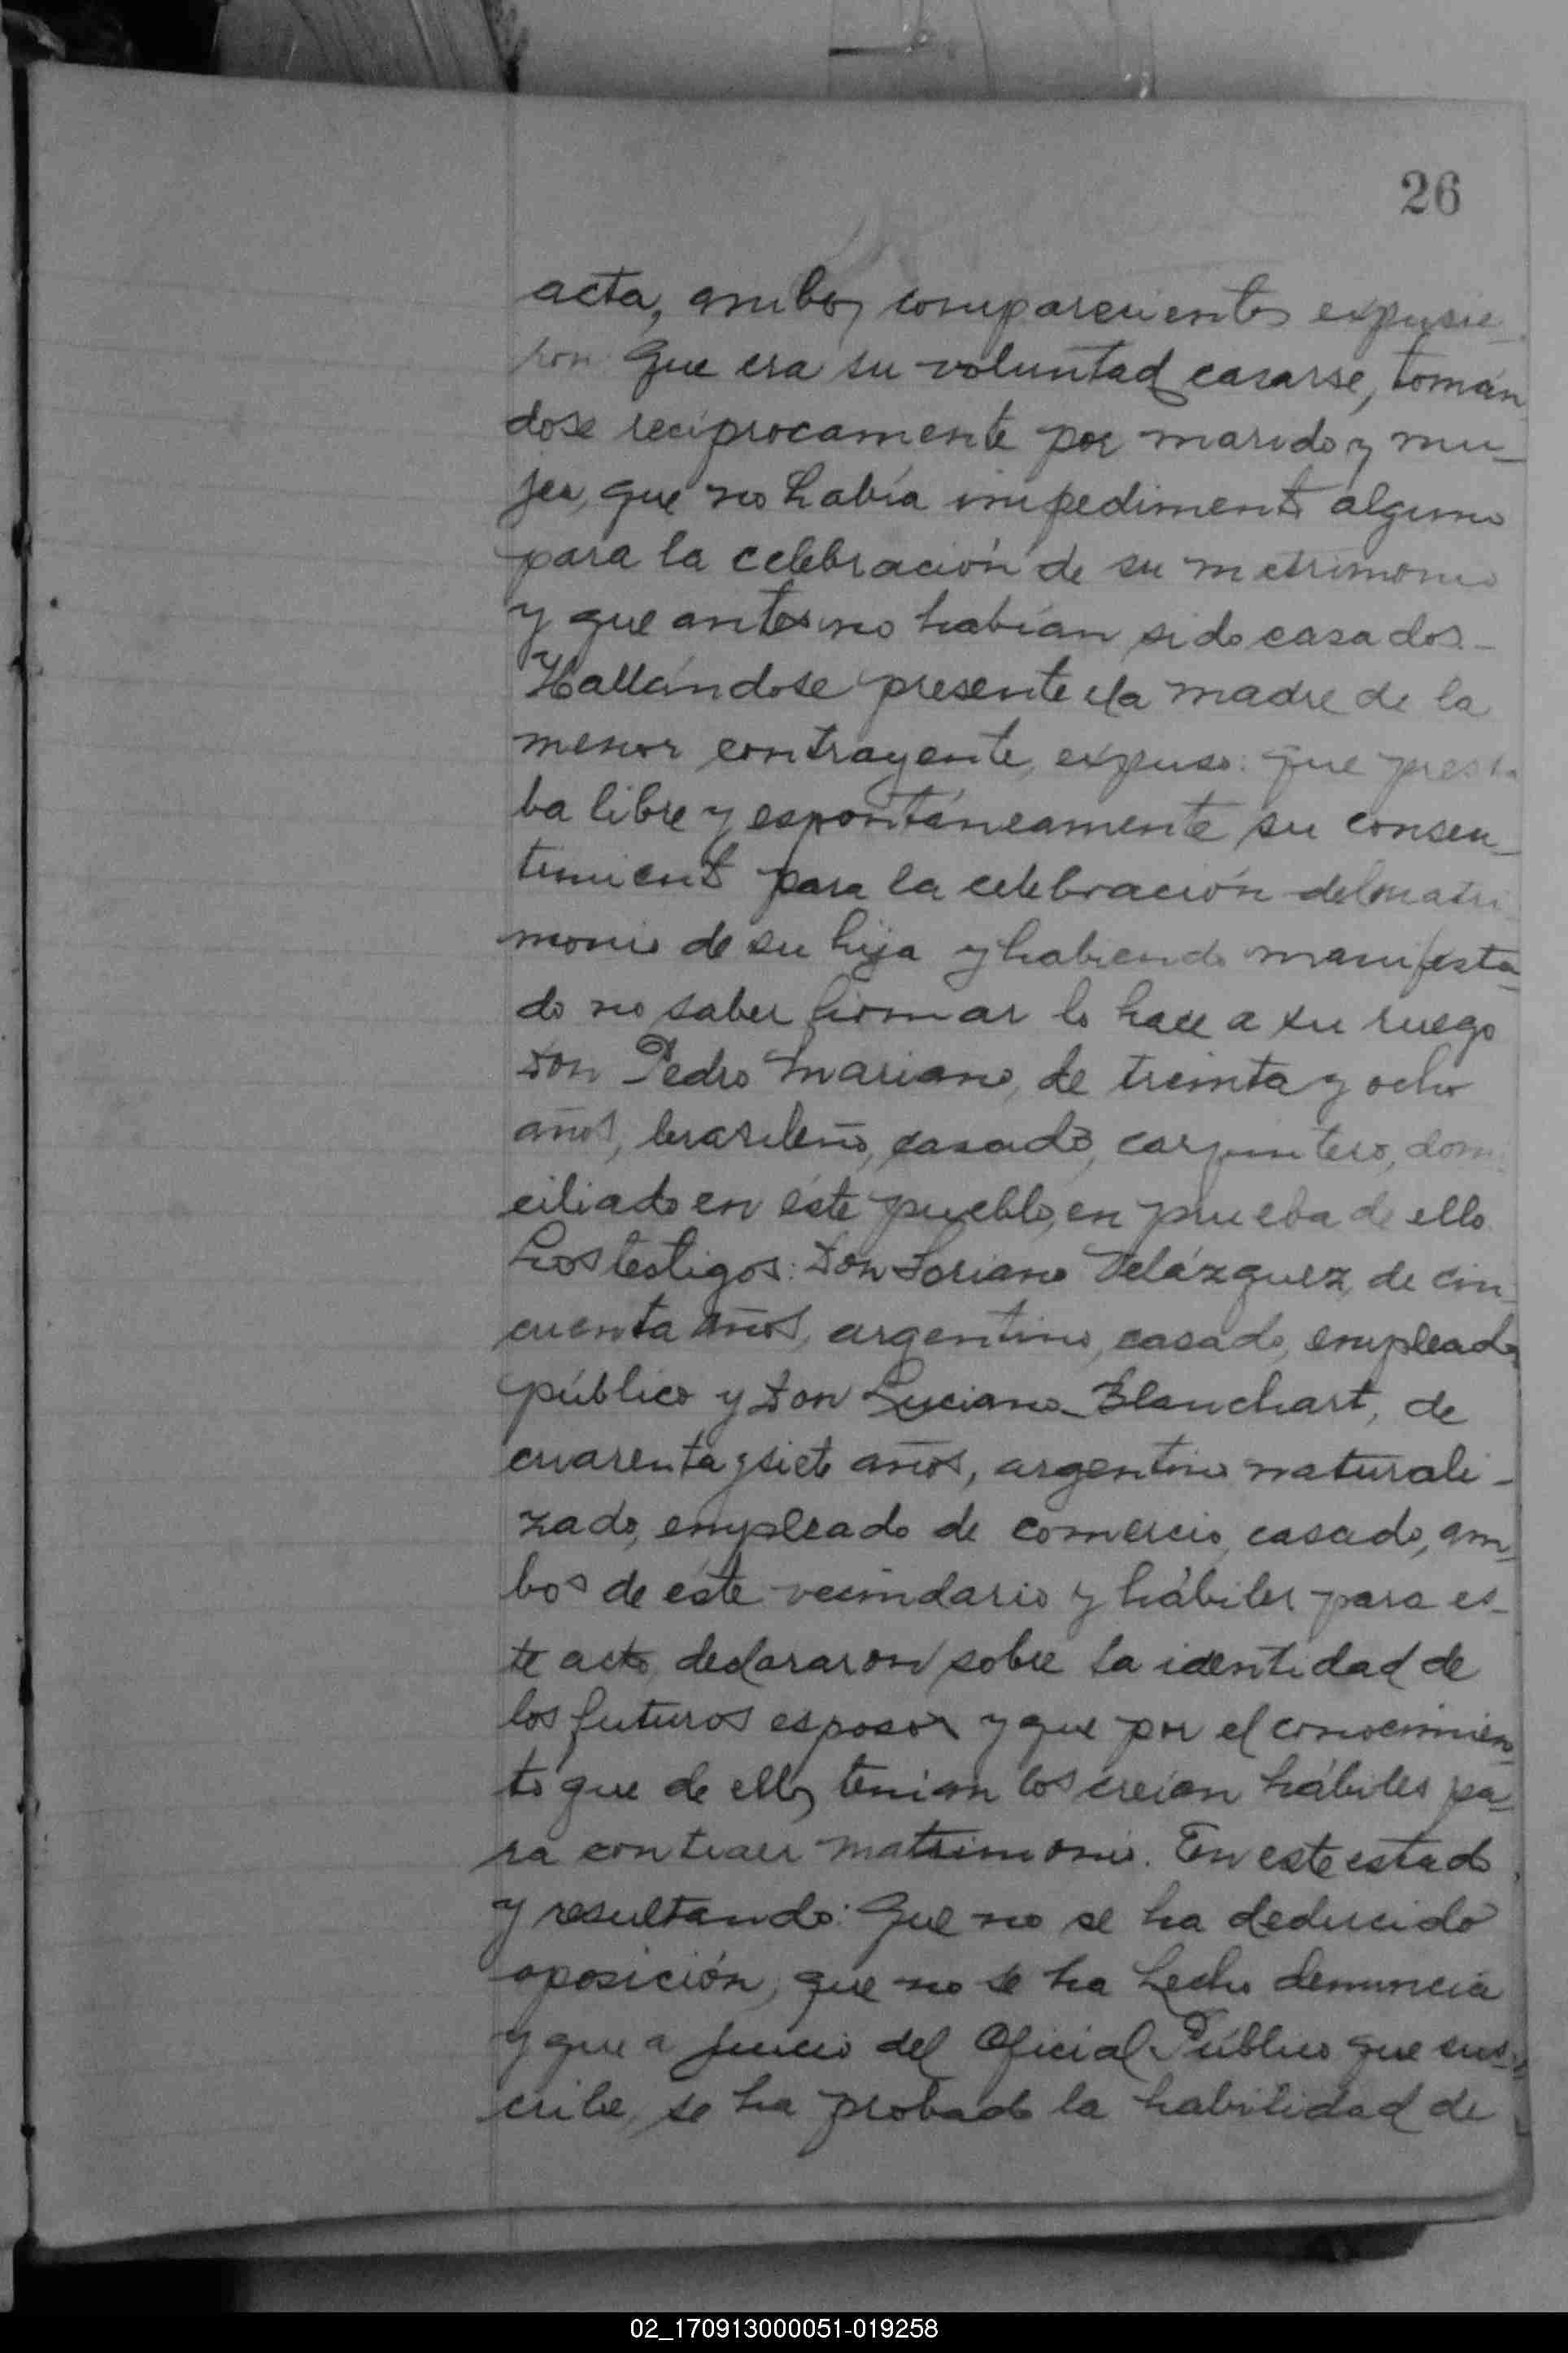 26
acta, ambos comparecientes expusie-
ron: Que era su voluntad casarse, tomán
dose recíprocamente por marido y mu-
jer, que no había impedimento alguno
para la celebración de su matrimonio
y que antes no habían sido casados.-
Hallándose presente la madre de la
menor contrayente, expuso: que presta
ba libre y espontáneamente su consen-
timiento para la celebración del matri
monio de su hija y habiendo manifesta-
do no saber firmar lo hace a su ruego
Don Pedro Mariano, de treinta y ocho
años, brasileño, casado, carpintero, domi
ciliado en éste pueblo, en prueba de ello
Los testigos: Don Soriano Velázquez, de cin-
cuenta años, argentino, casado, empleado
público y Don Luciano Blanchart, de
cuarenta y siete años, argentino naturali-
zado, empleado de comercio, casado, am-
bos de éste vecindario y hábiles para es-
te acto, declararon sobre la identidad de
los futuros esposos y que por el conocimien-
to que de ellos tenían los creían hábiles pa-
ra contraer matrimonio. En este estado
y resultando: Que no se ha deducido
oposición, que no se ha hecho denuncia
y que a juicio del Oficial Público que sus-
cribe, se ha probado la habilidad de
02_170913000051-019258